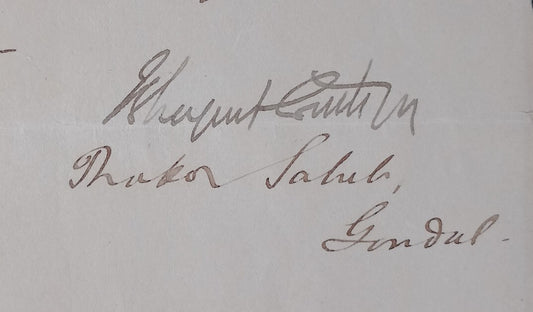 Bhagvut Sinhjee
Thakor Saheb,
Gondal -